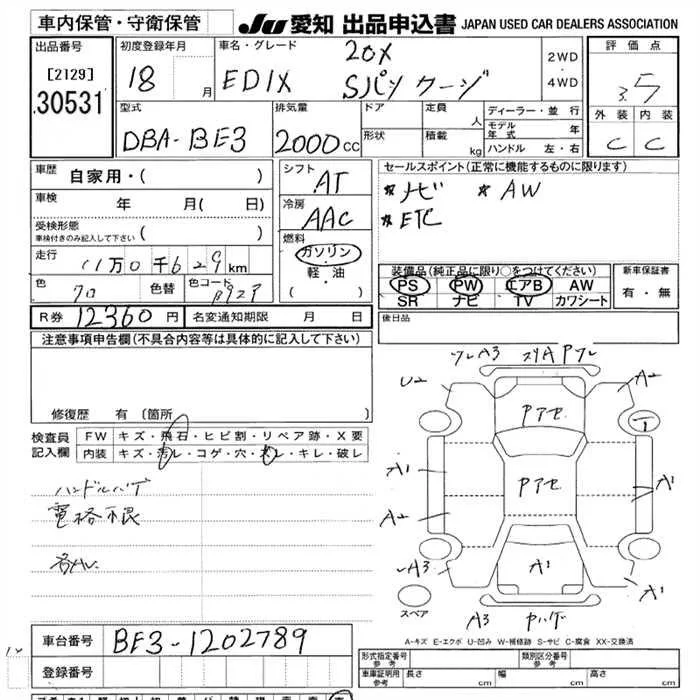 車内保管・守衛保管
JU 愛知 出品申込書 JAPAN USED CAR DEALERS ASSOCIATION
出品番号
[2129]
30531
初度登録年月
18 月
車名・グレード
EDIX
20X
2WD
・
4WD
評価点
3.5
外装 内装
C C
型式
DBA-BE3
排気量
2000 CC
ドア
形状
定員 人
積載 kg
ディーラー・並行
モデル年式 年
ハンドル 左・右
車歴 自家用・( )
車検 年 月( 日)
受検形態
車検付きのみ記入して下さい ( )
走行 11万0千629km
色 クロ 色替 色コード
R券 12360円 名変通知期限 月 日
シフト AT
冷房 AAC
燃料
ガソリン
・軽・油
( )
セールスポイント(正常に機能するものに限ります)
*ナビ *AW
*ETC
装備品(純正品に限り○をつけてください)
PS PW エアB AW
SR ナビ TV カワシート
新車保証書
有・無
後日品
注意事項申告欄(不具合内容等は具体的に記入して下さい)
修復歴 有〔箇所
検査員記入欄
FW キズ・飛石・ヒビ割・リペア跡・X要
内装 キズ・汚レ・コゲ・穴・スレ・キレ・破レ
ハンドルハゲ
電格不良
A3
U2
A2
Pアセ
A1
A1
Pアセ
A2
A3
A1
A1
A3
スペア
A-キズ E-エクボ U-凹み W-補修跡 S-サビ C-腐食 XX-交換済
車台番号 BE3-1202789
登録番号
形式指定番号 参考
類別区分番号 参考
車庫証明用 参考 長さ cm 幅 cm 高さ cm